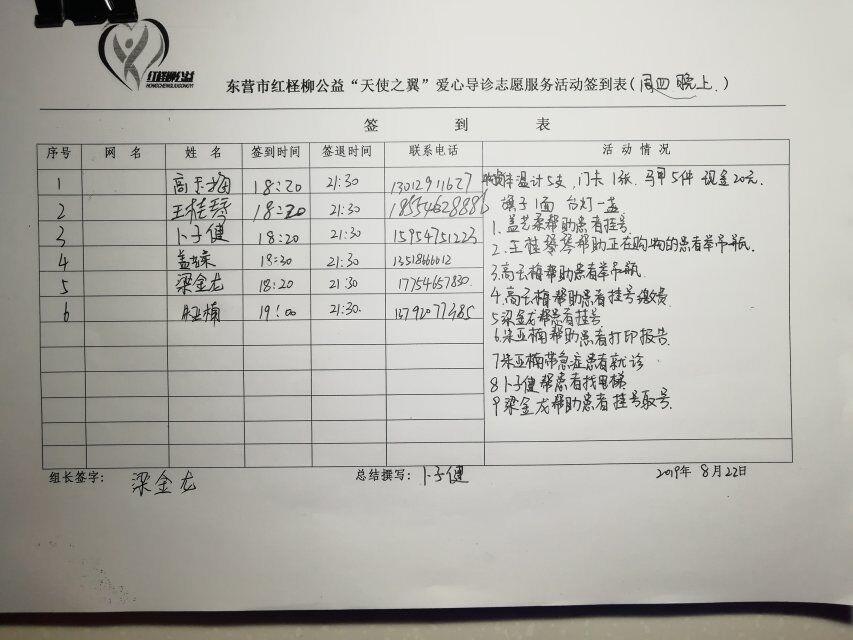 红柽柳公益
HONGCHENGLIUGONGYI
东营市红柽柳公益“天使之翼”爱心导诊志愿服务活动签到表(周四晚上.)
签 到 表
序号 网名 姓名 签到时间 签退时间 联系电话 活动情况
1 高玉梅 18:20 21:30 13012911627 体温计5支,门卡1张.马甲5件 现金20元.
2 王桂琴 18:20 21:30 18554628886 旗子1面 台灯一盏
1.盖艺柔帮助患者挂号.
3 卜子健 18:20 21:30 15954751223
2.王桂琴帮助正在购物的患者举吊瓶.
4 盖艺柔 18:30 21:30 13518666012
3.高玉梅帮助患者举吊瓶.
5 梁金龙 18:20 21:30 17754657830.
4.高玉梅帮助患者挂号缴费.
6 朱亚楠 19:00 21:30. 13792077485
5梁金龙帮患者挂号
6.朱亚楠帮助患者打印报告.
7朱亚楠带急症患者就诊
8卜子健帮患者找电梯
9梁金龙帮助患者挂号取号.
组长签字: 梁金龙 总结撰写: 卜子健 2019年8月22日